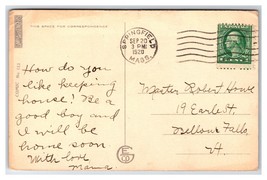 THIS SPACE FOR CORRESPONDENCE
How do you
like keeping
house! Be a
good boy and
I will be
home soon
With love
Mama.
SPRINGFIELD
SEP 20
3 PM
1920
MASS.
Master Robert Howe
19 Earle St.
Bellows Falls
Vt.